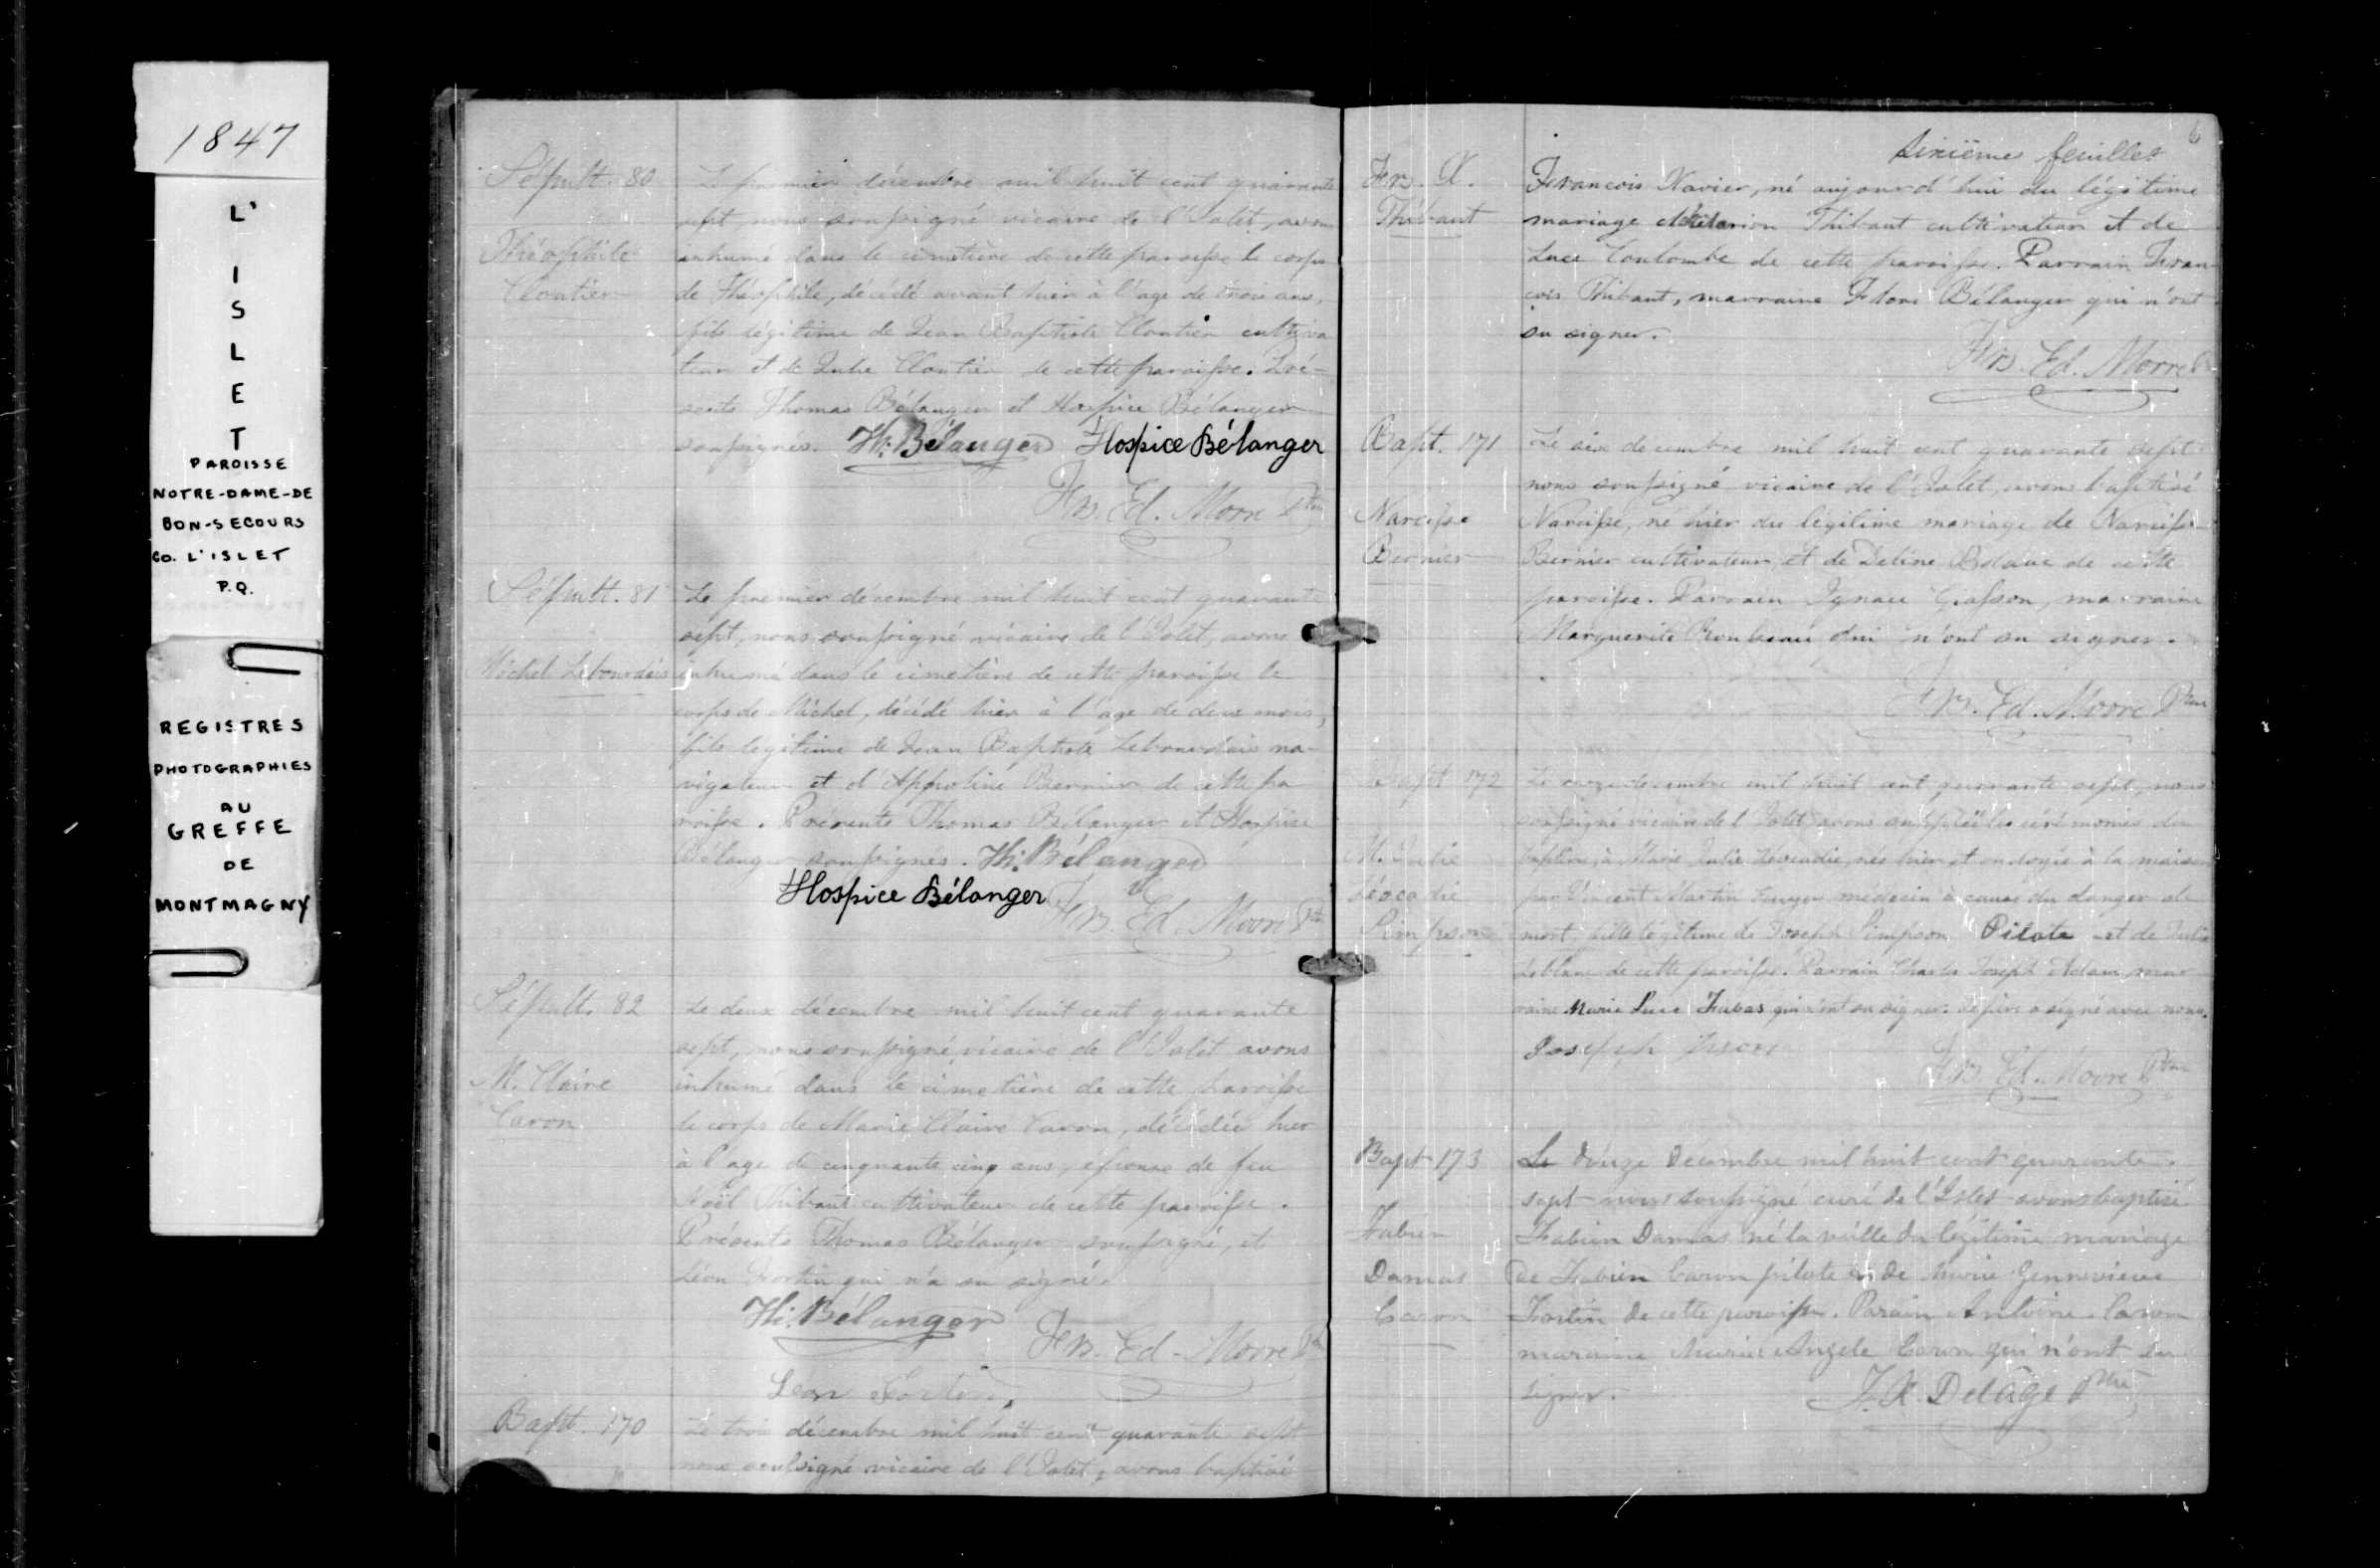 1847
L'
I
S
L
E
T
PAROISSE
NOTRE-DAME-DE
BON-SECOURS
CO. L'ISLET
P.Q.
REGISTRES
PHOTOGRAPHIES
AU
GREFFE
DE
MONTMAGNY
Sépult. 80
Théophile
Cloutier
Le premier décembre mil huit cent quarante
sept, nous soussigné vicaire de l'Islet, avons
inhumé dans le cimetière de cette paroisse le corps
de Théophile, décédé avant hier à l'age de trois ans,
fils légitime de Jean Baptiste Cloutier cultiva
teur et de Julie Cloutier de cette paroisse. Pré-
sents Thomas Bélanger et Hospice Bélanger
soussignés. Th. Bélanger Hospice Bélanger
Frs. Ed. Moore Ptre
Sépult. 81
Michel Lebourdais
Le premier décembre mil huit cent quarante
sept, nous soussigné vicaire de l'Islet, avons
inhumé dans le cimetière de cette paroisse le
corps de Michel, décédé hier à l'age de deux mois,
fils légitime de Jean Baptiste Lebourdais na-
vigateur et d'Appoline Bernier de cette pa
roisse. Présents Thomas Bélanger et Hospice
Bélanger soussignés. Th. Bélanger
Hospice Bélanger Frs. Ed. Moore Ptre
Sépult. 82
M. Claire
Caron
Le deux décembre mil huit cent quarante
sept, nous soussigné vicaire de l'Islet avons
inhumé dans le cimetière de cette paroisse
le corps de Marie Claire Caron, décédée hier
à l'age de cinquante cinq ans, épouse de feu
Noël Thibaut cultivateur de cette paroisse.
Présents Thomas Bélanger soussigné, et
Léon Fortin qui n'a su signé.
Th. Bélanger
Frs. Ed. Moore Ptre
Leon Fortin
Bapt. 170
Le trois décembre mil huit cent quarante sept
nous soussigné vicaire de l'Islet, avons baptisé
6
sixième feuillet
Frs. X.
Thibaut
Francois Xavier, né aujourd'hui du légitime
mariage d'Hilarion Thibaut cultivateur et de
Luce Coulombe de cette paroisse. Parrain Fran
cois Thibaut, marraine Flore Bélanger qui n'ont
su signer.
Frs. Ed. Moore Ptre
Bapt. 171
Narcisse
Bernier
Le six decembre mil huit cent quarante sept
nous soussigné vicaire de l'Islet, avons baptisé
Narcisse, né hier du légitime mariage de Narcisse
Bernier cultivateur, et de Deline de cette
paroisse. Parrain Ignace Gasson, marraine
Marguerite qui n'ont su signer.
Frs. Ed. Moore Ptre
Bapt 172
M. Julie
Léocadie
Simpson
Le onze decembre mil huit cent quarante sept, nous
soussigné vicaire de l'Islet avons suppléé les cérémonies du
baptême à Marie Julie Léocadie, née hier et ondoyée à la maison
par Vincent Martin médecin à cause du danger de
mort, fille légitime de Joseph Simpson Pilote et de Julie
Leblanc de cette paroisse. Parrain Charles Joseph Adam mar
raine Marie Luce qui n'ont su signer. Le père a signé avec nous.
Joseph
Frs. Ed. Moore Ptre
Bapt 173
Fabien
Damas
Caron
Le douze Decembre mil huit cent quarante
sept nous soussigné curé de l'Islet avons baptisé
Fabien Damas né la veille du légitime mariage
de Fabien Caron pilote et de Marie Genneviève
Fortin de cette paroisse. Parain Antoine Caron
maraine Marie Angele Caron qui n'ont su
signer. F. X. Delâge Ptre